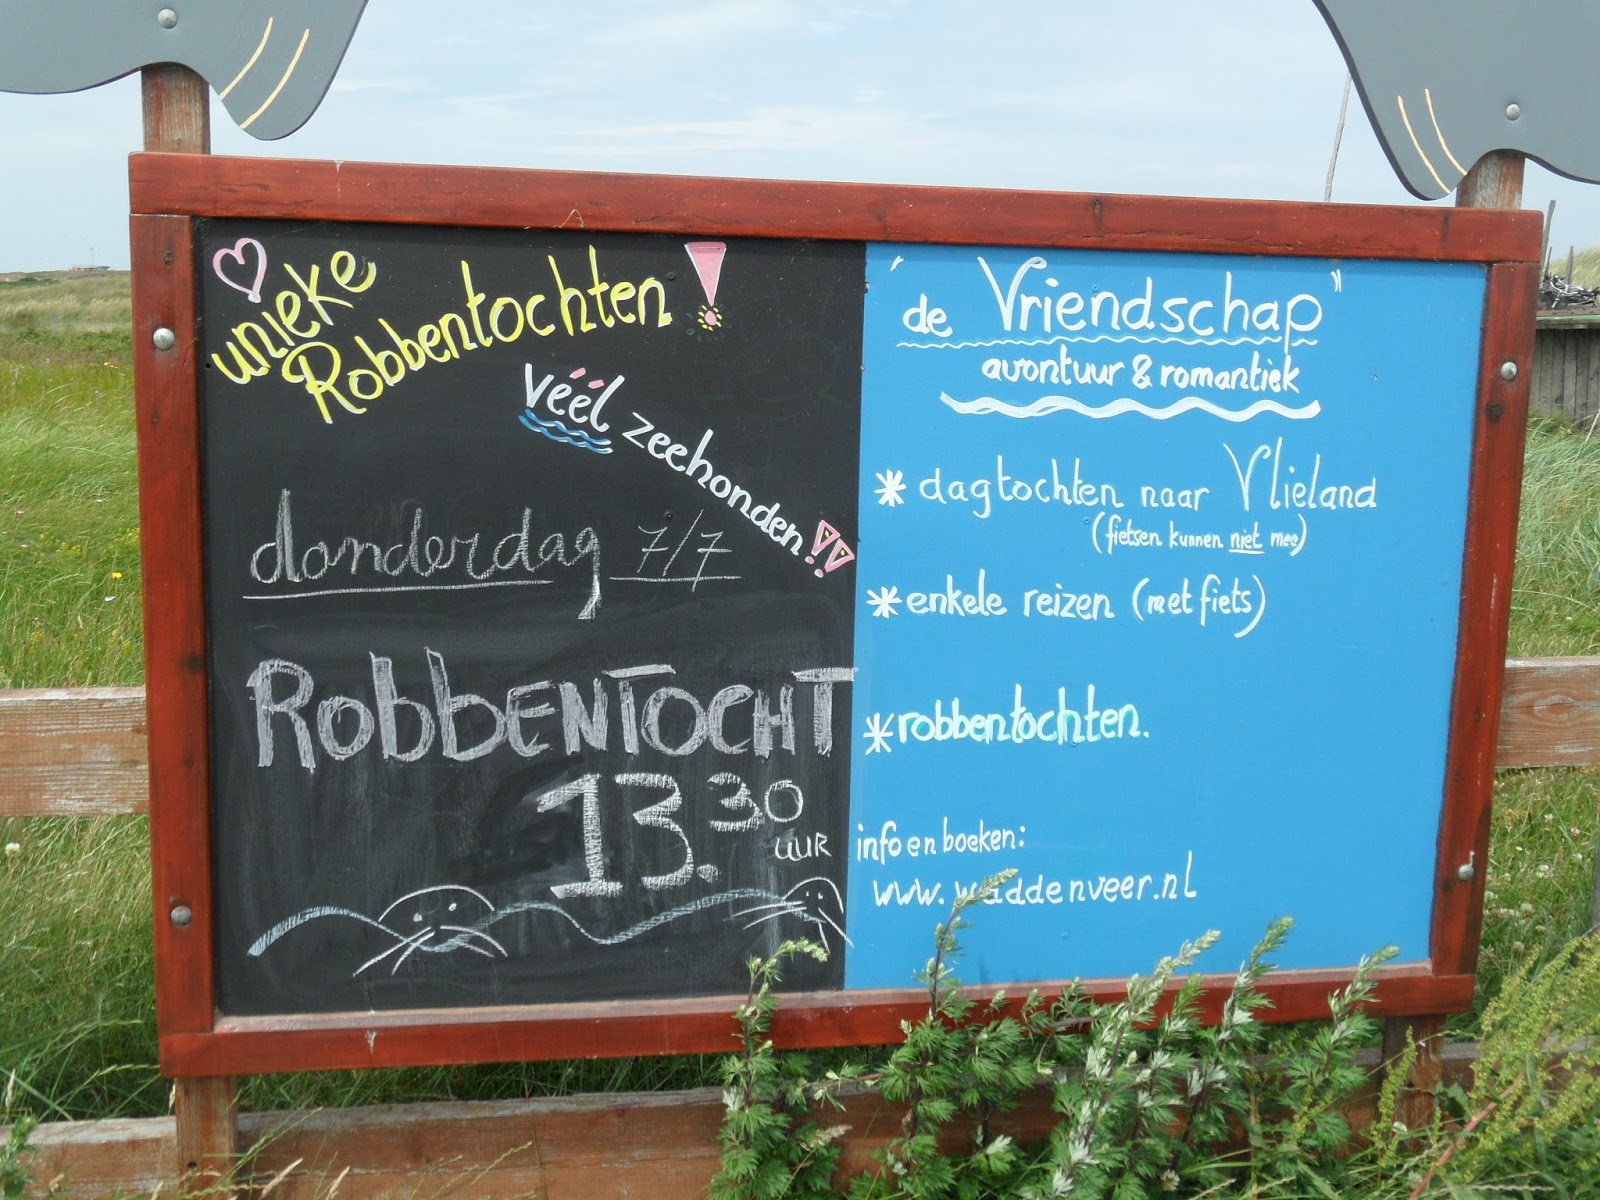 unieke
Robbentochten!
véél zeehonden!!
donderdag 7/7
RobbENTOCHT
13.30
UUR
"de Vriendschap"
avontuur & romantiek
* dagtochten naar Vlieland
(fietsen kunnen niet mee)
* enkele reizen (met fiets)
* robbentochten.
info en boeken:
www.waddenveer.nl